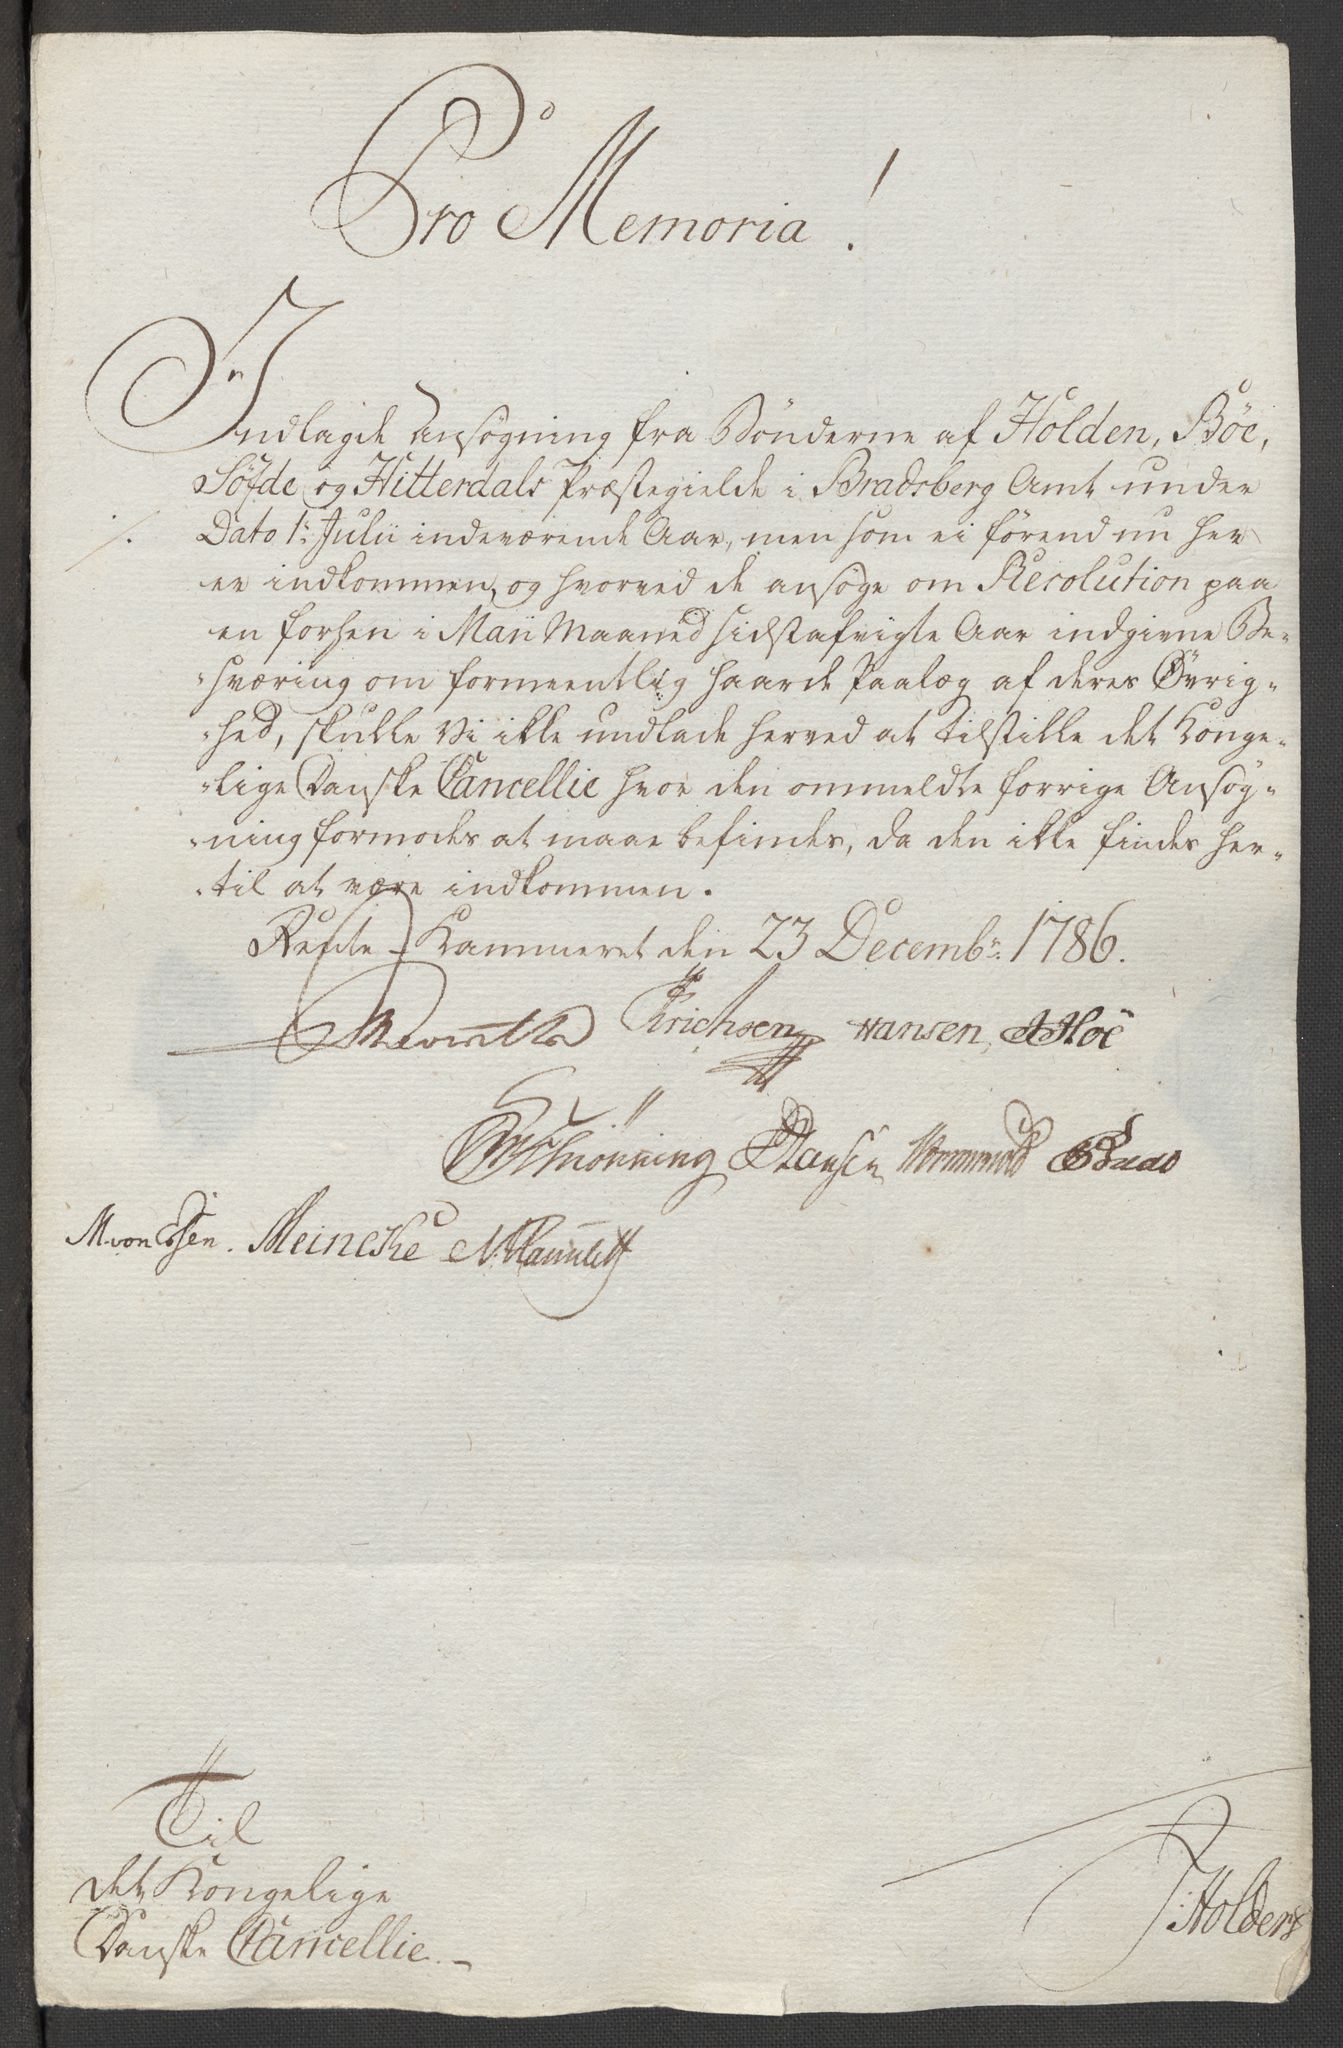 Pro Memoria!
Indlagde Ansøgning fra Bønderne af Holden, Bøe,
Søfde og Hitterdals Præstegield i Bradsberg Amt under
Dato 1: Julii indeværende Aar, men som ei førend nu her
er indkommen, og hvorved de ansøge om Resolution paa
en forhen i Maii Maaned sidstafvigte Aar indgivne Be-
sværing om formeentlig haarde Paalæg af deres Øvrig-
hed, skulle Vi ikke undlade herved at tilstille det Konge-
lige Danske Cancellie hvor den ommeldte forrige Ansøg-
ning formodes at maae befindes, da den ikke findes her-
til at være indkommen.
Rente-Kammeret den 23 Decembr: 1786.
Erichsen Hansen
Schiønning Hansen
Meincke
Til
det Kongelige
Danske Cancellie.